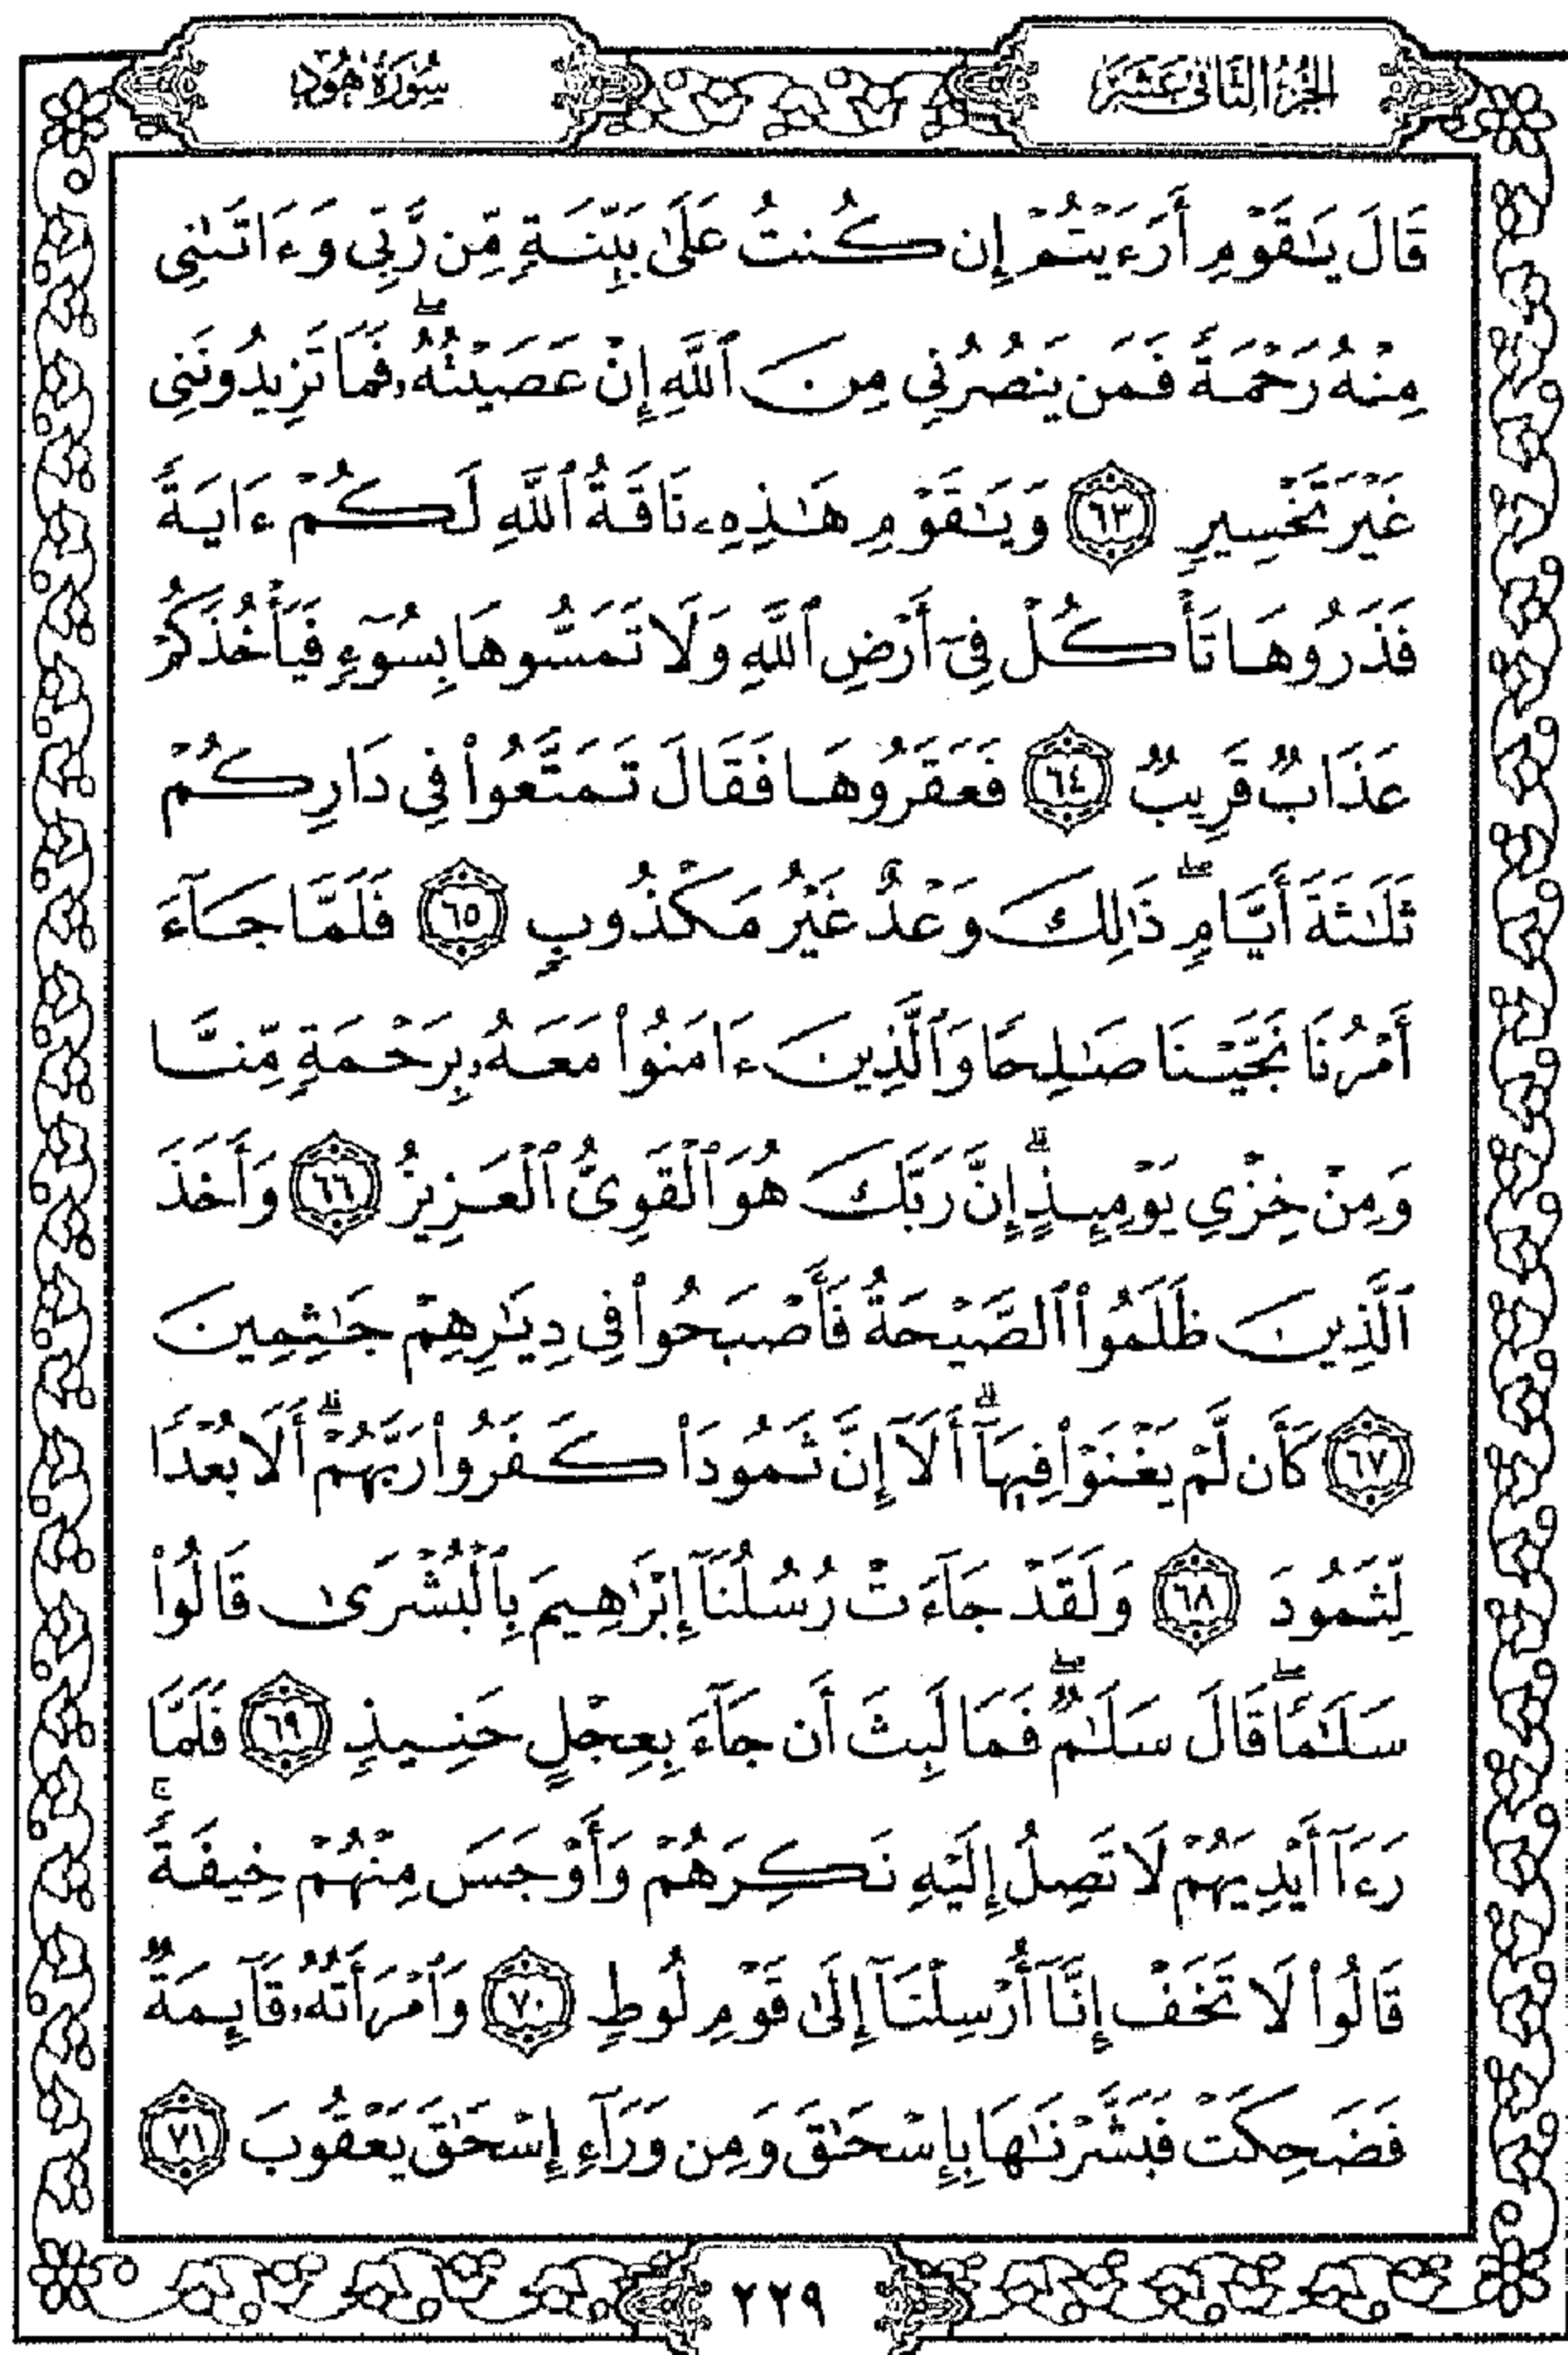 الجزء الثاني عشر
سورة هود
قَالَ يَٰقَوْمِ أَرَءَيْتُمْ إِن كُنتُ عَلَىٰ بَيِّنَةٍ مِّن رَّبِّي وَءَاتَىٰنِي
مِنْهُ رَحْمَةً فَمَن يَنصُرُنِي مِنَ ٱللَّهِ إِنْ عَصَيْتُهُۥۖ فَمَا تَزِيدُونَنِي
غَيْرَ تَخْسِيرٍ ٦٣ وَيَٰقَوْمِ هَٰذِهِۦ نَاقَةُ ٱللَّهِ لَكُمْ ءَايَةً
فَذَرُوهَا تَأْكُلْ فِىٓ أَرْضِ ٱللَّهِ وَلَا تَمَسُّوهَا بِسُوٓءٍ فَيَأْخُذَكُمْ
عَذَابٌ قَرِيبٌ ٦٤ فَعَقَرُوهَا فَقَالَ تَمَتَّعُوا۟ فِي دَارِكُمْ
ثَلَٰثَةَ أَيَّامٍۖ ذَٰلِكَ وَعْدٌ غَيْرُ مَكْذُوبٍ ٦٥ فَلَمَّا جَآءَ
أَمْرُنَا نَجَّيْنَا صَٰلِحًا وَٱلَّذِينَ ءَامَنُوا۟ مَعَهُۥ بِرَحْمَةٍ مِّنَّا
وَمِنْ خِزْيِ يَوْمِئِذٍۗ إِنَّ رَبَّكَ هُوَ ٱلْقَوِىُّ ٱلْعَزِيزُ ٦٦ وَأَخَذَ
ٱلَّذِينَ ظَلَمُوا۟ ٱلصَّيْحَةُ فَأَصْبَحُوا۟ فِي دِيَٰرِهِمْ جَٰثِمِينَ
٦٧ كَأَن لَّمْ يَغْنَوْا۟ فِيهَآۗ أَلَآ إِنَّ ثَمُودَا۟ كَفَرُوا۟ رَبَّهُمْۗ أَلَا بُعْدًا
لِّثَمُودَ ٦٨ وَلَقَدْ جَآءَتْ رُسُلُنَآ إِبْرَٰهِيمَ بِٱلْبُشْرَىٰ قَالُوا۟
سَلَٰمًاۖ قَالَ سَلَٰمٌۖ فَمَا لَبِثَ أَن جَآءَ بِعِجْلٍ حَنِيذٍ ٦٩ فَلَمَّا
رَءَآ أَيْدِيَهُمْ لَا تَصِلُ إِلَيْهِ نَكِرَهُمْ وَأَوْجَسَ مِنْهُمْ خِيفَةًۚ
قَالُوا۟ لَا تَخَفْ إِنَّآ أُرْسِلْنَآ إِلَىٰ قَوْمِ لُوطٍ ٧٠ وَٱمْرَأَتُهُۥ قَآئِمَةٌ
فَضَحِكَتْ فَبَشَّرْنَٰهَا بِإِسْحَٰقَ وَمِن وَرَآءِ إِسْحَٰقَ يَعْقُوبَ ٧١
٢٢٩